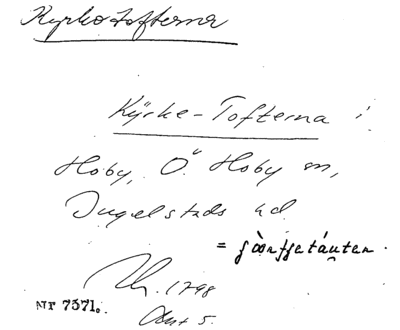 Kyrkotofterna
Kÿrke-Tofterna i
Hoby, Ö. Hoby sn,
Ingelstads hd.
=
1798
Akt 5.
Nr 7371.